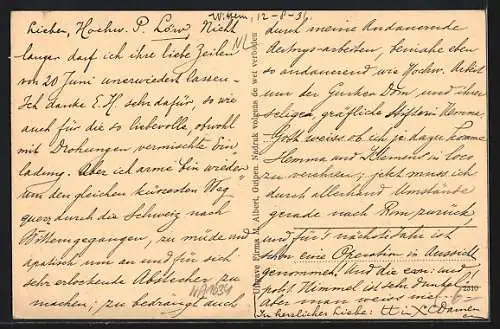 Wittem, 12-8-31
Lieber, Hochw. P. Löw, Nicht
langer darf ich ihre liebe Zeilen
von 20 Juni unerwiedert lassen.
Ich danke E.H. sehr dafür, so wie
auch für die so liebevolle, obwohl
mit Drohungen vermischte Ein
ladung. Aber ich arme bin wieder
um den gleichen kürzesten Weg
quer durch die Schweiz nach
Wittem gegangen, zu müde und
apatisch um an und für sich
sehr erlockende Abstecher zu
machen; zu bedrängt auch
NL
Uitgave Firma M. Alberts, Gulpen. Nadruk volgens de wet verboden
durch meine andauernde
arbeiten, beinahe eben
so andauerend wie Hochw.
um der Gurker Dom und ihrer
seligen, gräfliche Stifterin Hemma.
Gott weiss ob ich je dazu komme
Hemma und Klemens in loco
zu verehren; jetzt muss ich
durch allerhand Umstände
gerade nach Rom zurück
und für's nächste Jahr ist
schon eine Operation in Aussicht
genommen. And die
Himmel ist sehr dunkel!
Aber man weiss nie!
In herzlicher Liebe:
2810